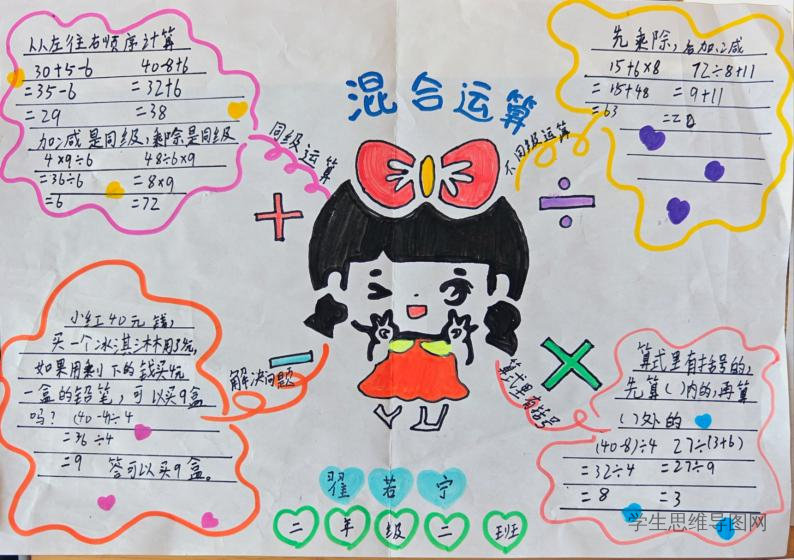 混合运算
从左往右顺序计算
30+5-6 40-8+6
=35-6 =32+6
=29 =38
加减是同级,乘除是同级
4×9÷6 48÷6×9
=36÷6 =8×9
=6 =72
同级运算
先乘除,后加减
15+6×8 72÷8+11
=15+48 =9+11
=63 =20
不同级运算
小红40元钱,
买一个冰淇淋用了元,
如果用剩下的钱买4元
一盒的铅笔,可以买9盒
吗? (40-4)÷4
=36÷4
=9 答可以买9盒。
解决问题
算式里有括号的,
先算( )内的,再算
( )外的
(40-8)÷4 27÷(3+6)
=32÷4 =27÷9
=8 =3
算式里有括号
翟若宁
二年级二班
学生思维导图网